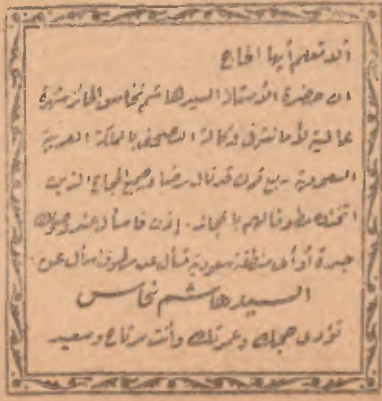 ألا تعلم أيها الحاج
ان حضرة الأستاذ السيد هاشم نحاس والحائز شهرة
عالمية لأمانته في وكالة بالمملكة العربية
السعودية - ربع قرن قد نال رضا وجميع الحجاج الذين
اتخذوه مطوفا لهم بالحجاز. إذن فاسأل عند وصولك
جدة أو أى منطقة سعودية تسأل عن مطوف اسأل عن
السيد هاشم نحاس
تؤدى حجك وعمرتك وأنت مرتاح وسعيد